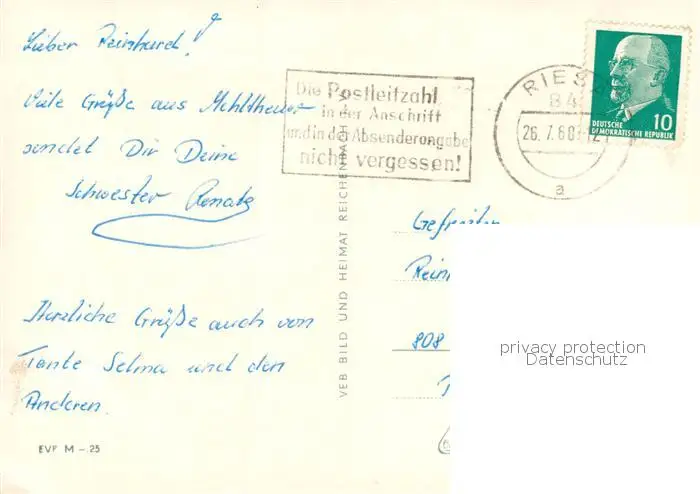 Lieber Reinhard!
Viele Grüße aus Mehltheuer
sendet Dir Deine
Schwester Renate
Herzliche Grüße auch von
Tante Selma und den
Anderen.
EVP M -.25
VEB BILD UND HEIMAT REICHENBACH
Die Postleitzahl
in der Anschrift
und in der Absenderangabe
nicht vergessen!
RIESA
84
26.7.68
a
DEUTSCHE
DEMOKRATISCHE REPUBLIK
10
Gefreiten
808
privacy protection
Datenschutz